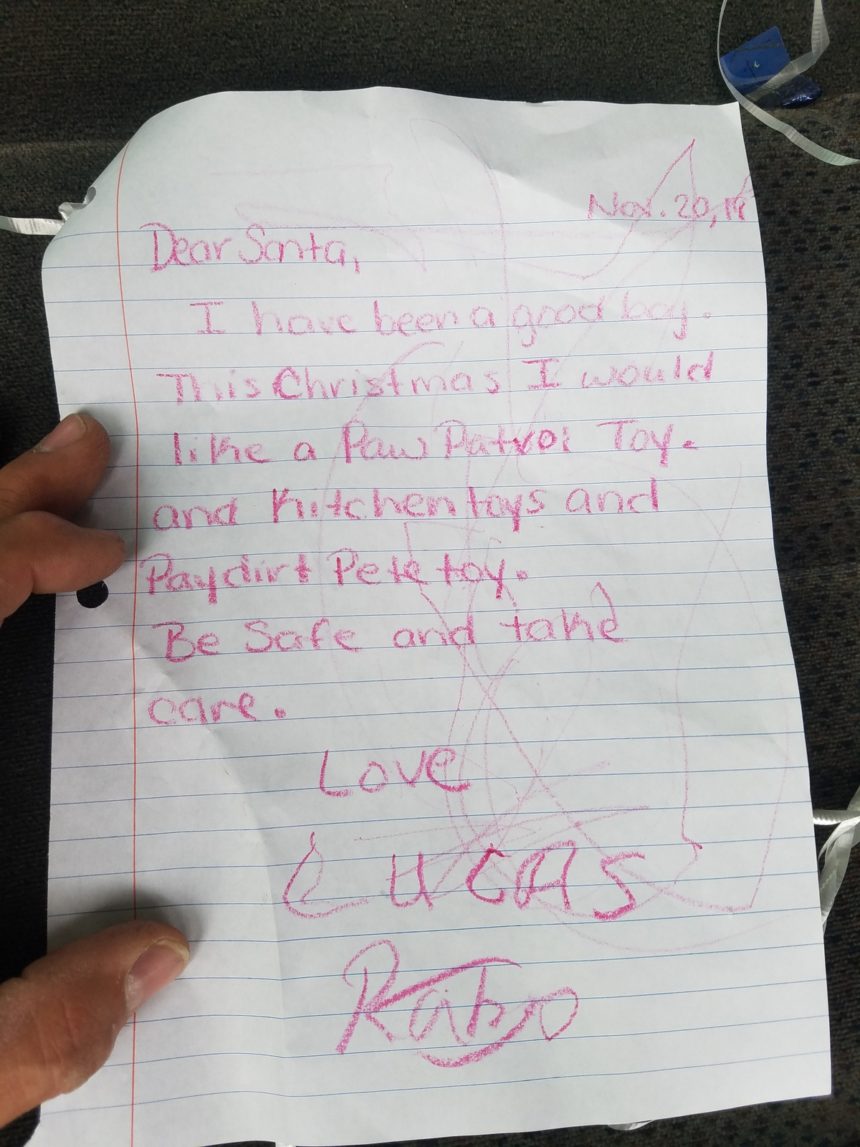 Nov. 20, 19
Dear Santa,
I have been a good boy.
This Christmas I would
like a Paw Patrol Toy.
and Kitchen toys and
Paydirt Pete toy.
Be Safe and take
care.
Love
LUCAS